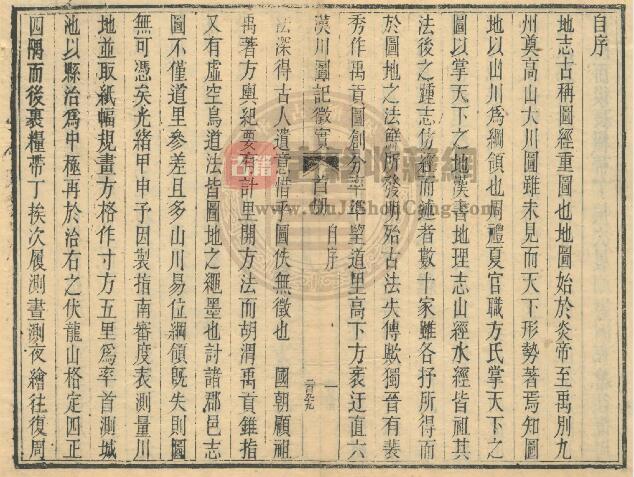 自序
地志古稱圖經重圖也地圖始於炎帝至禹別九
州奠高山大川圖雖未見而天下形勢著焉知圖
地以山川爲綱領也周禮夏官職方氏掌天下之
圖以掌天下之地漢書地理志山經水經皆祖其
法後之踵志仿經而述者數十家雖各抒所得而
於圖地之法鮮所發明殆古法失傳歟獨晉有裴
秀作禹貢圖創分率準望道里高下方袤迂直六
漢川圖記徵實 首冊 自序 一
法深得古人遺意惜乎圖佚無徵也 國朝顧祖
禹著方輿紀要有計里開方法而胡渭禹貢錐指
又有虛空鳥道法皆圖地之繩墨也討諸郡邑志
圖不僅道里參差且多山川易位綱領既失則圖
無可憑矣光緒甲申予因製指南審度表測量川
地並取紙幅規畫方格作寸方五里爲率首測城
池以縣治爲中極再於治右之伏龍山格定四正
四隅而後裹糧帶丁挨次履測晝測夜繪往復周
古籍收藏網
www.GuJiShouCang.com